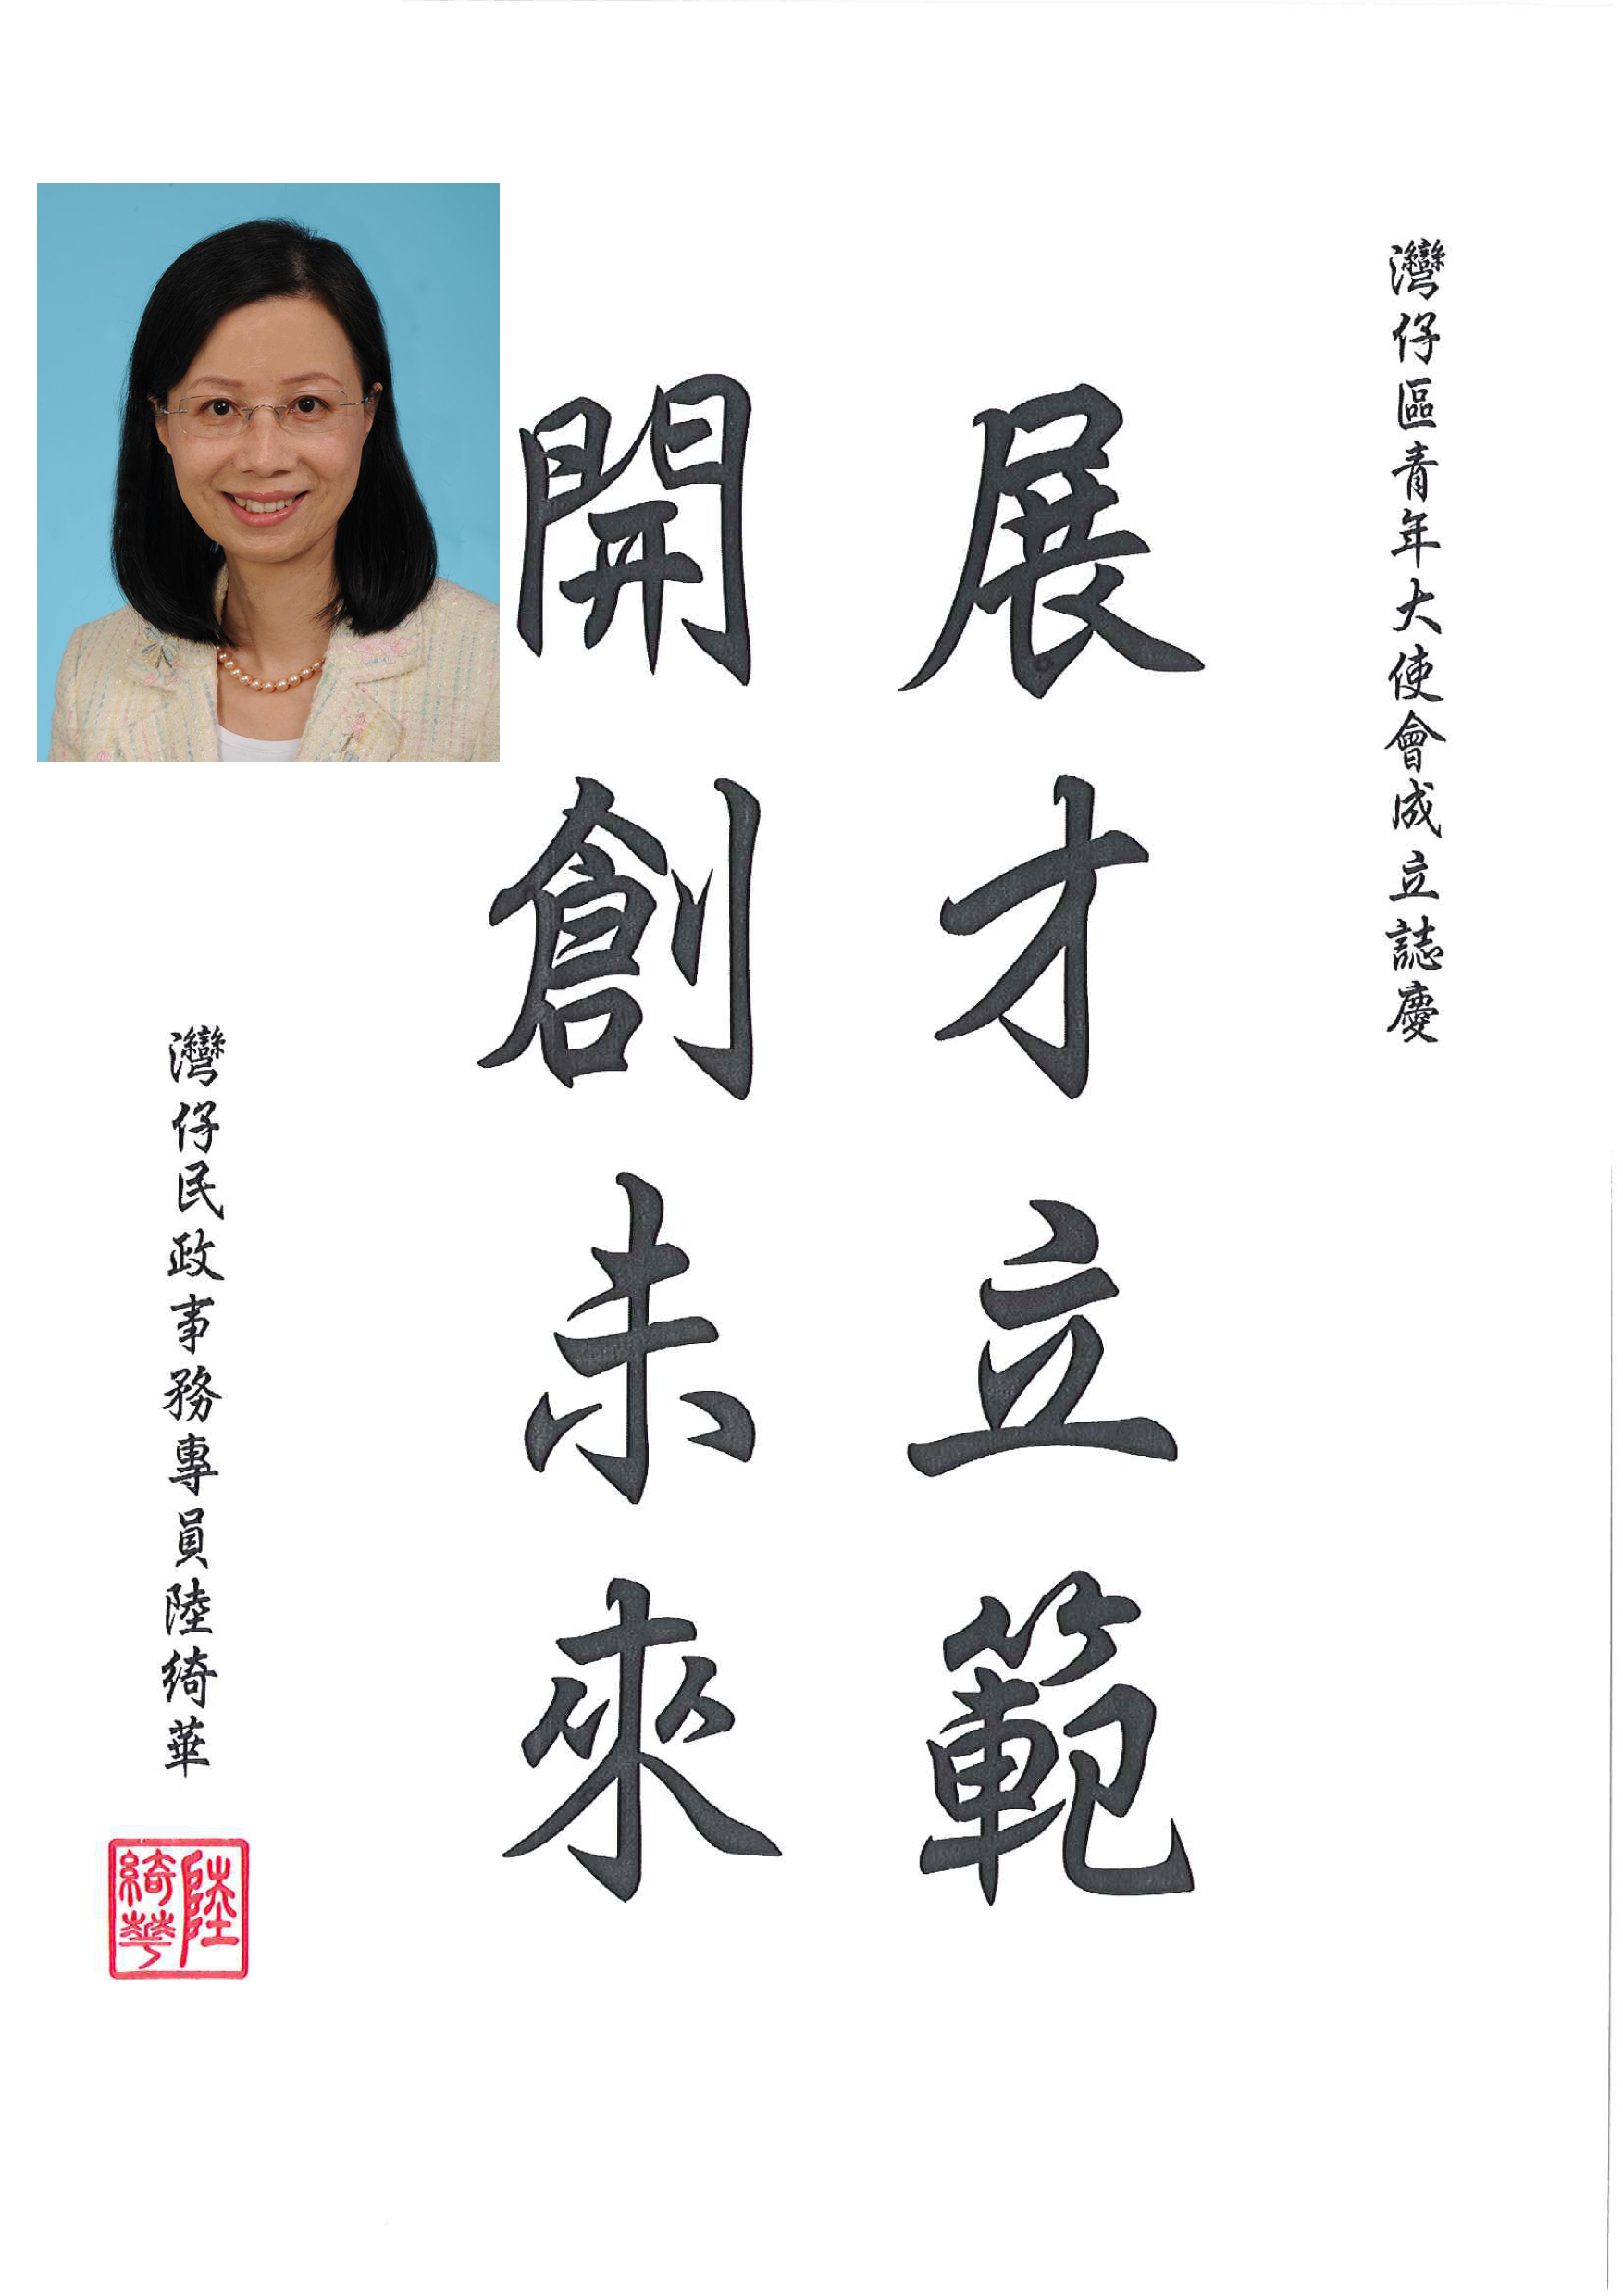 灣仔區青年大使會成立誌慶
展才立範
開創未來
灣仔民政事務專員陸綺華
陸綺華